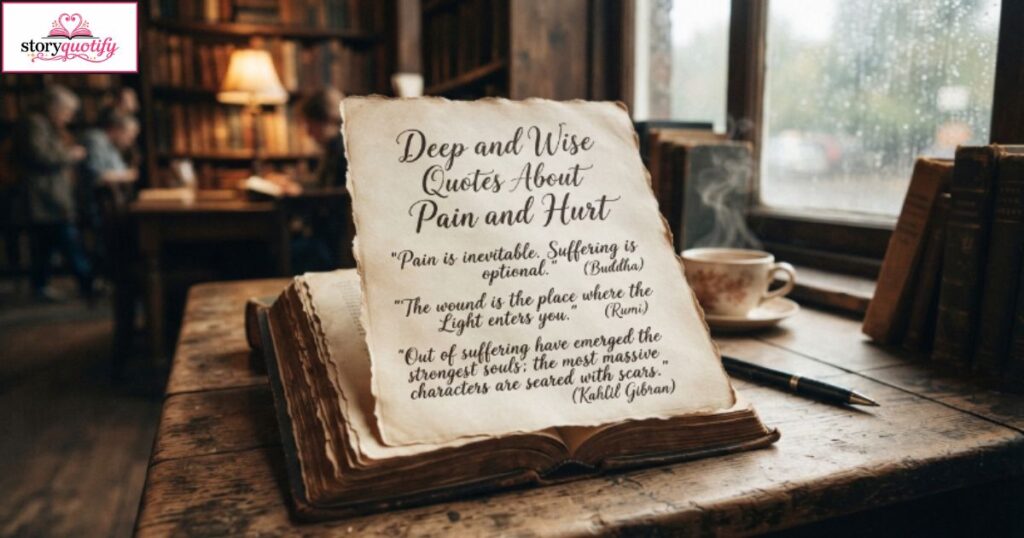 storyquotify
Deep and Wise
Quotes About
Pain and Hurt
"Pain is inevitable. Suffering is
optional." (Buddha)
"The wound is the place where the
Light enters you." (Rumi)
"Out of suffering have emerged the
strongest souls; the most massive
characters are seared with scars."
(Kahlil Gibran)